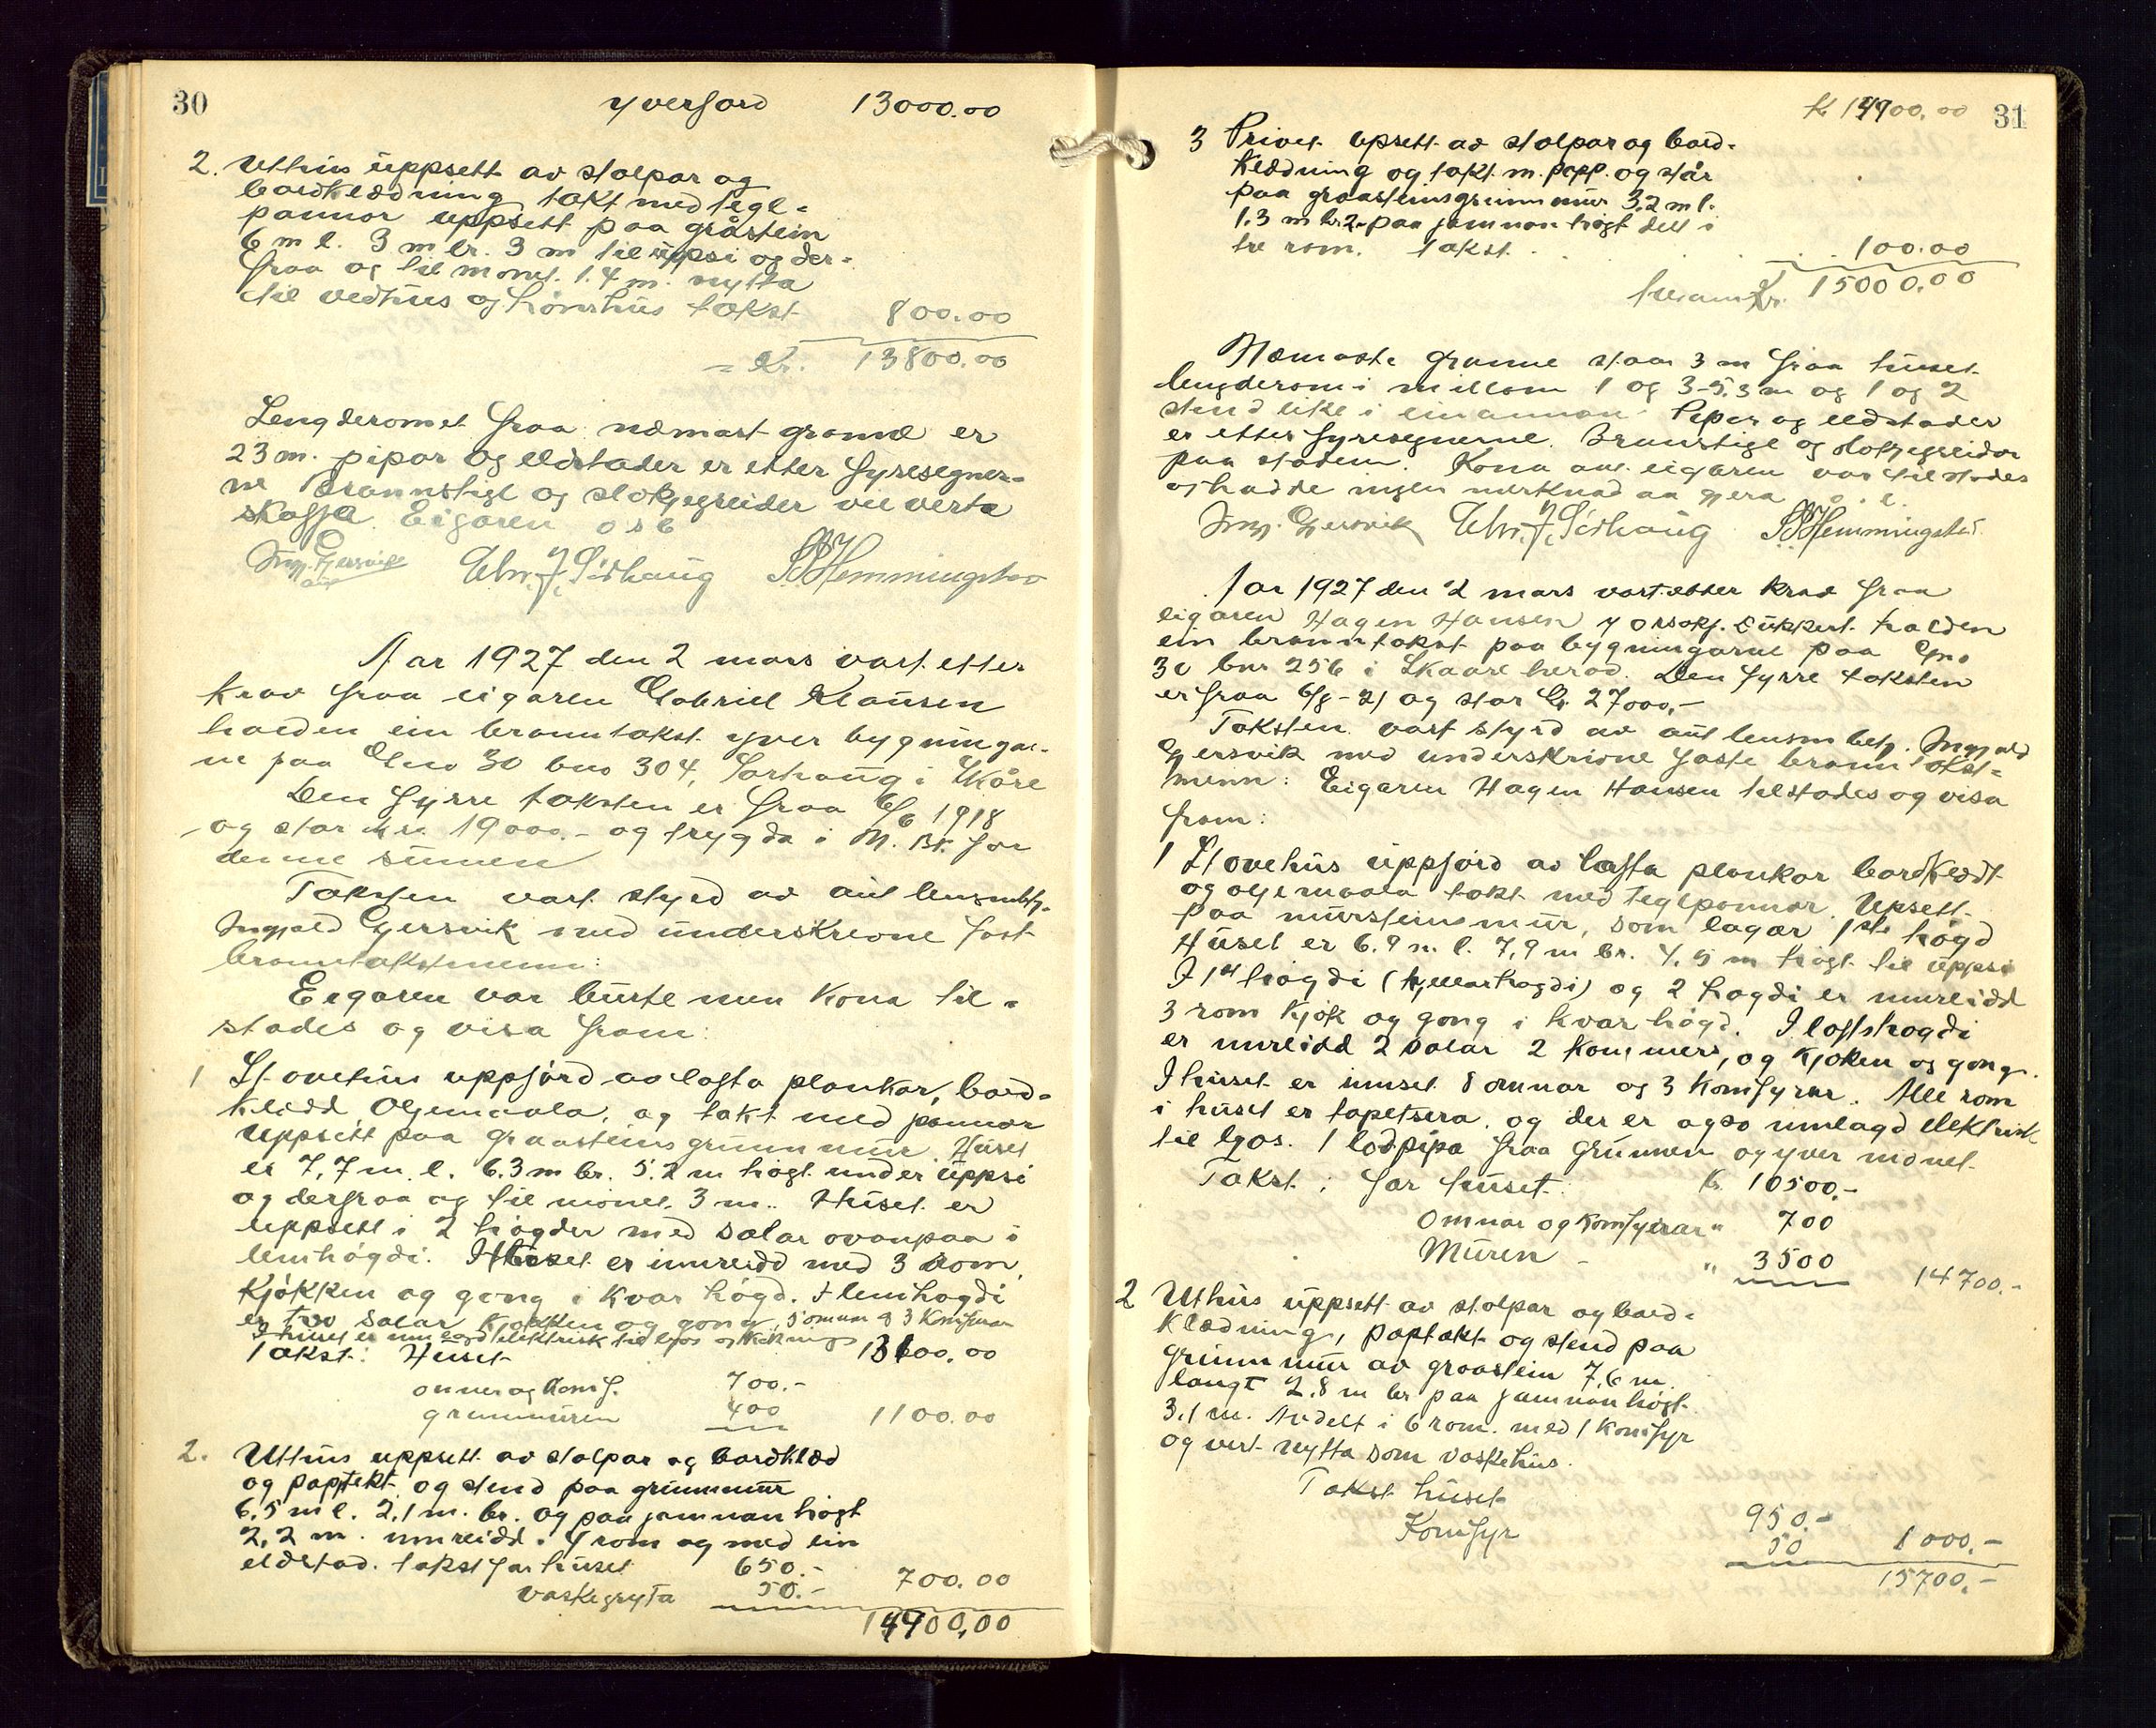 30
yverførd 13000.00
2. Uthus uppsett av stolpar og
bordklædning takt med tegl-
pannor uppsett paa gråstein
6 m l. 3 m br. 3 m til uppsi og der-
fraa og til mønet. 1.4 m. nytta
til vedhus og hønshus takst 800.00
= Kr. 13800.00
Lengderomet fraa næmast granne er
23 m. pipor og eldstader er etter fyresegner-
ne Brannstige og sløkjegreider vil verta
skaffa. Eigaren o s b
Ing. Gjersvik Chr. J. Sørhaug Hemmingstad
Aar 1927 den 2 mars vart etter
krav fraa eigaren Gabriel Klausen
halden ein branntakst yver bygningar-
ne paa Gno 30 bno 304, Sørhaug i Skåre
Den fyrre taksten er fraa 6/6 1918
og står kr. 19000.- og trygda i N. Br. for
denne sumen
Taksten vart styrd av aut lensmbtj.
Ingjald Gjersvik med underskrevne fast
branntakstmenn:
Eigaren var burte men kona til-
stades og visa fram:
1 Stovehus uppførd av lafta plankar, bord-
klædd Oljemaala, og takt med pannor
uppsett paa graasteins grunnmur. Huset
er 7,7 m l. 6.3 m br. 5.2 m høgt under uppsi
og derfraa og til mønet. 3 m.. Huset er
uppsett i 2 høgder med salar ovanpaa i
lemhøgdi. Huset er innreidd med 3 rom
kjøkken og gong i kvar høgd. I lemhøgdi
er tvo salar kjøkken og gong, 5 omnar og 3 Komfyrar
I huset er innlagd elektrisk til ljos og kokning
Takst: Huset 13100.00
omner og Komf. 700.-
grunnmuren 400 1100.00
2. Uthus uppsett av stolpar og bordklæd
og paptekt og stend paa grunnmur
6.5 m l. 2,1 m. br. og paa jamnan høgt
2,2 m. innreidd i 4 rom og med ein
eldstad. takst for huset 650.-
vaskegryta 50.- 700.00
14900,00
Kr 14900,00 31
3 Privet upsett av stolpar og bord-
klædning og takt m. papp. og står
paa graasteinsgrunnmur 3,2 m l.
1.3 m br. 2 m paa jamnan høgt delt i
tre rom. takst. 100.00
tilsaman Kr. 15000.00
Næmaste granne staar 3 m fraa huset
lengderom i millom 1 og 3 - 5.3 m og 1 og 2
stend like i einannan. Pipor og eldstader
er etter fyresegnerne. Brannstige og sløkjegreidor
paa staden. Kona aat eigaren var tilstades
og hadde ingen merknad aa gjera o. l.
Ing. Gjersvik Chr. J. Sørhaug Hemmingstad
Aar 1927 den 2 mars vart etter krav fraa
eigaren Hagen Hansen halden
ein branntakst paa bygningarne paa Gno
30 bnr 256 i Skaare herad. Den fyrre taksten
er fraa 6/8 - 21 og står kr. 27000.-
Taksten vart styrd av aut lensm betj. Ingjald
Gjersvik med underskrivne faste branntakst-
menn: Eigaren Hagen Hansen tilstades og visa
fram:
1 Stovehus uppførd av lafta plankar bordklædt
og oljemaala takt med teglpannor. Upsett
paa mursteinsmur, som lagar 1ste høgd
Huset er 6.9 m l. 7,9 m br. 4,5 m høgt til uppsi
I 1st høgdi (kjellarhøgdi) og 2 høgdi er innreidd
3 rom kjøk og gong i kvar høgd. I loftshøgdi
er innreidd 2 salar 2 kammers, og kjøken og gong.
I huset er innset 8 omnar og 3 Komfyrar. Alle rom
i huset er tapetsera. og der er ogso innlagd elektrisk
til ljos. 1 lodpipa fraa grunnen og yver mønet.
Takst: for huset: Kr. 10500,-
Omnar og Komfyrar " 700
Muren - " 3500 14700.-
2 Uthus uppsett av stolpar og bord-
klædning, paptakt og stend paa
grunnmur av graastein 7,6 m
langt 2.8 m br paa jamnan høgt
3.1 m. Avdelt i 6 rom. med 1 Komfyr
og vert nytta som vaskehus.
Takst huset 950.-
Komfyr 50 1000.-
15700.-